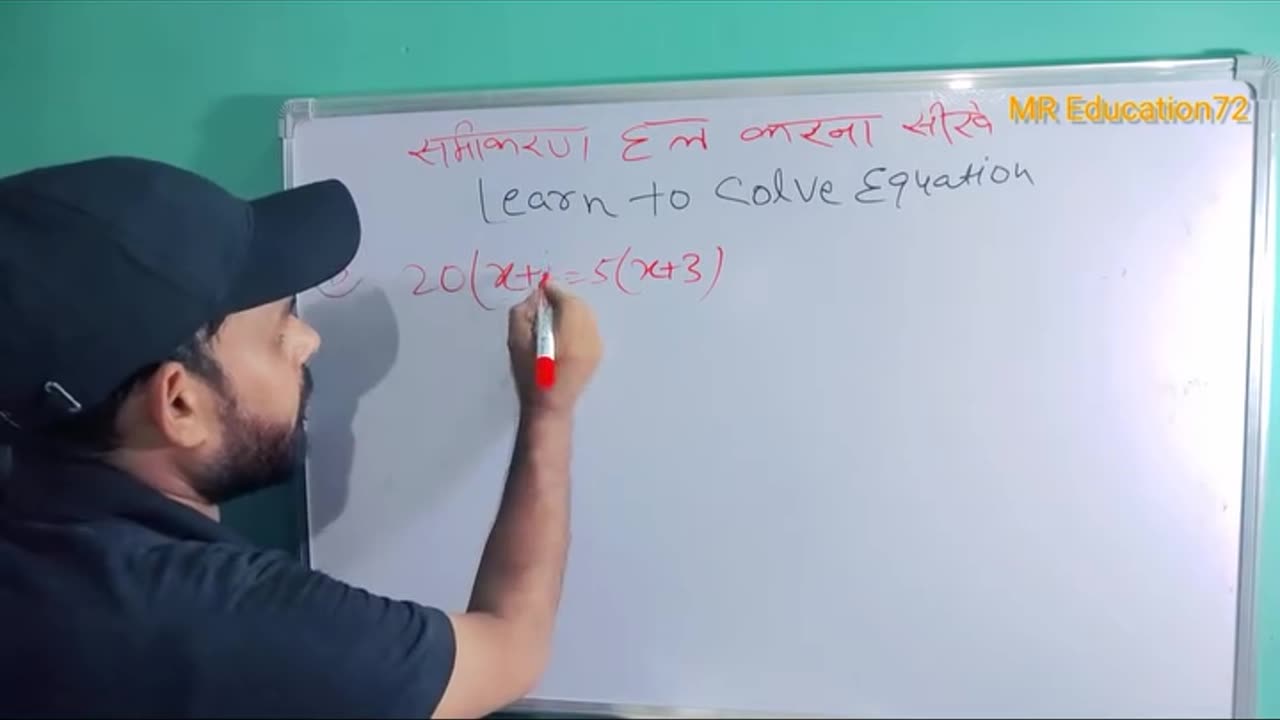 MR Education72
समीकरण हल करना सीखे
Learn to Solve Equation
20(x+ =5(x+3)